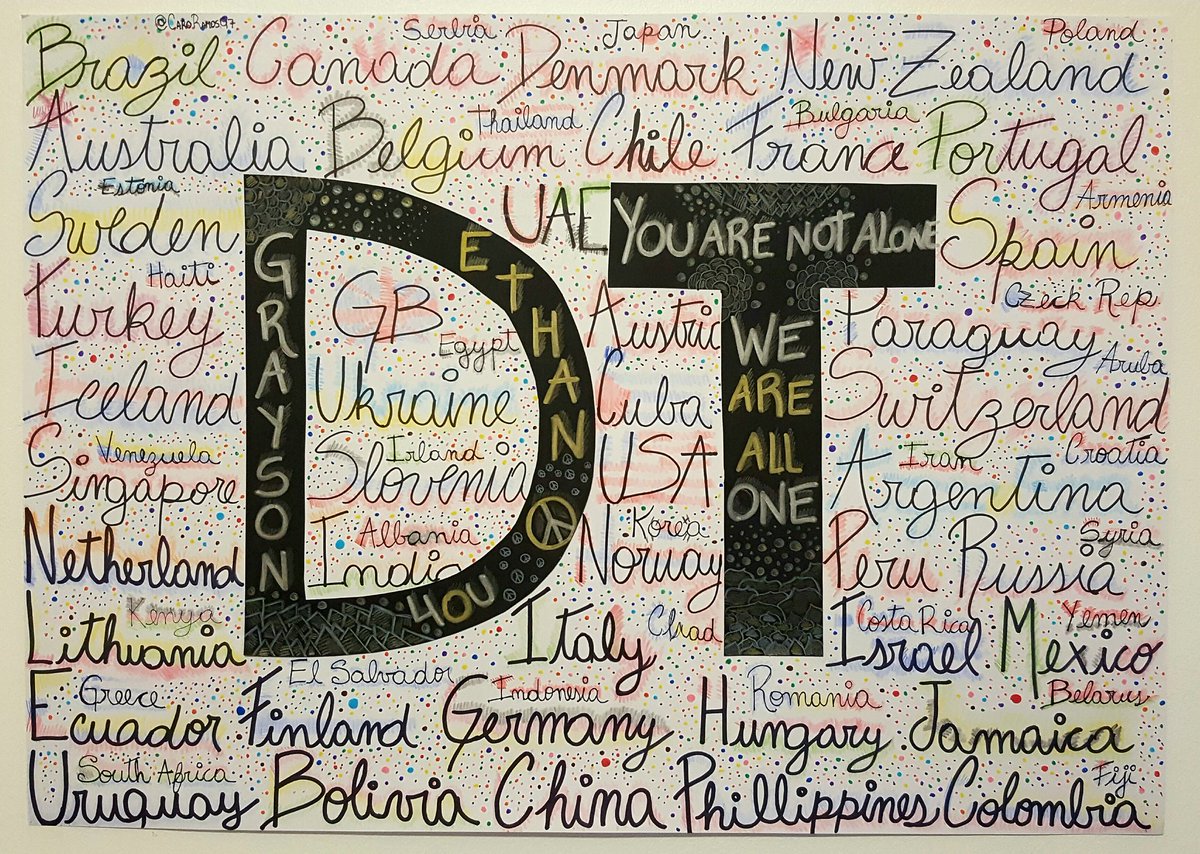 @CaroRamos97
Serbia Japan Poland
Brazil Canada Denmark New Zealand
Thailand Bulgaria
Australia Belgium Chile France Portugal
Estonia Armenia
Sweden UAE Spain
Haiti Czeck Rep
Turkey GB Austria Paraguay
Egypt Aruba
Iceland Ukraine Cuba Switzerland
Venezuela Irland Iran Croatia
Singapore Slovenia USA Argentina
Albania Korea Syria
Netherland India Norway Peru Russia
Kenya Chad Costa Rica Yemen
Lithuania Italy Israel Mexico
Greece El Salvador Indonesia Romania Belarus
Ecuador Finland Germany Hungary Jamaica
South Africa Fiji
Uruguay Bolivia China Phillippines Colombia
DT
GRAYSON
ETHAN
4OU
YOU ARE NOT ALONE
WE
ARE
ALL
ONE